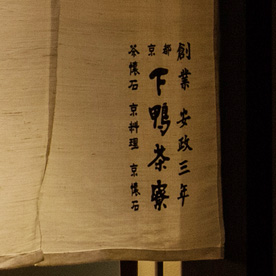 創業 安政三年
京都
下鴨茶寮
茶懐石 京料理 京懐石